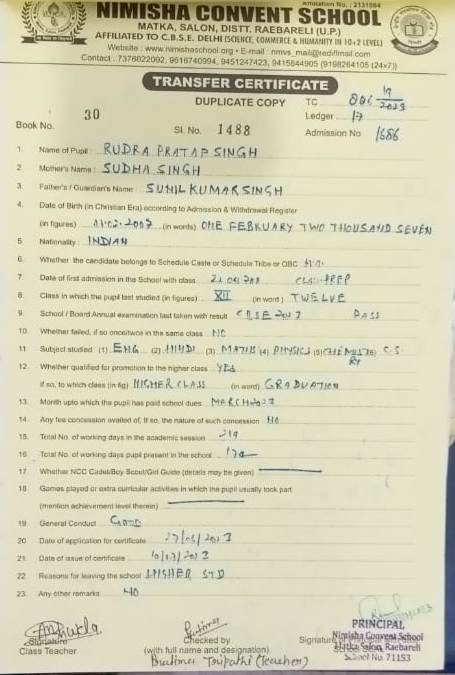 Affiliation No. : 2131064
NIMISHA CONVENT SCHOOL
MATKA, SALON, DISTT. RAEBARELI (U.P.)
AFFILIATED TO C.B.S.E. DELHI (SCIENCE, COMMERCE & HUMANITY IN 10+2 LEVEL)
Website : www.nimishaschool.org • E-mail : nmvs_mail@rediffmail.com
Contact : 7376022002, 9616740994, 9451247423, 9415644905 (9198264105 (24x7))
TRANSFER CERTIFICATE
DUPLICATE COPY TC 806 / 19 2023
Book No. 30 Sl. No. 1488 Ledger 17
Admission No 1686
1. Name of Pupil : RUDRA PRATAP SINGH
2. Mother's Name : SUDHA SINGH
3. Father's / Guardian's Name : SUNIL KUMAR SINGH
4. Date of Birth (in Christian Era) according to Admission & Withdrawal Register
(in figures) 01.02.2007 (in words) ONE FEBRUARY TWO THOUSAND SEVEN
5. Nationality : INDIAN
6. Whether the candidate belongs to Schedule Caste or Schedule Tribe or OBC
7. Date of first admission in the School with class CLASS PREP
8. Class in which the pupil last studied (in figures) XII (in word) TWELVE
9. School / Board Annual examination last taken with result CBSE 2023 PASS
10. Whether failed, if so once/twice in the same class NO
11. Subject studied (1) ENG (2) HINDI (3) MATHS (4) PHYSICS (5) CHEMISTRY (6) C.S
12. Whether qualified for promotion to the higher class YES
if so, to which class (in fig) HIGHER CLASS (in word) GRADUATION
13. Month upto which the pupil has paid school dues MARCH 2023
14. Any fee concession availed of, if so, the nature of such concession NO
15. Total No. of working days in the academic session 219
16. Total No. of working days pupil present in the school 170
17. Whether NCC Cadet/Boy Scout/Girl Guide (details may be given)
18. Games played or extra curricular activities in which the pupil usually took part
(mention achievement level therein)
19. General Conduct GOOD
20. Date of application for certificate 27/05/2023
21. Date of issue of certificate 10/07/2023
22. Reasons for leaving the school HIGHER STD
23. Any other remarks NO
Signature Class Teacher
Checked by
(with full name and designation)
Pratima Tripathi (Teacher)
Signature
PRINCIPAL
Nimisha Convent School
Matka Salon, Raebareli
School No. 71153